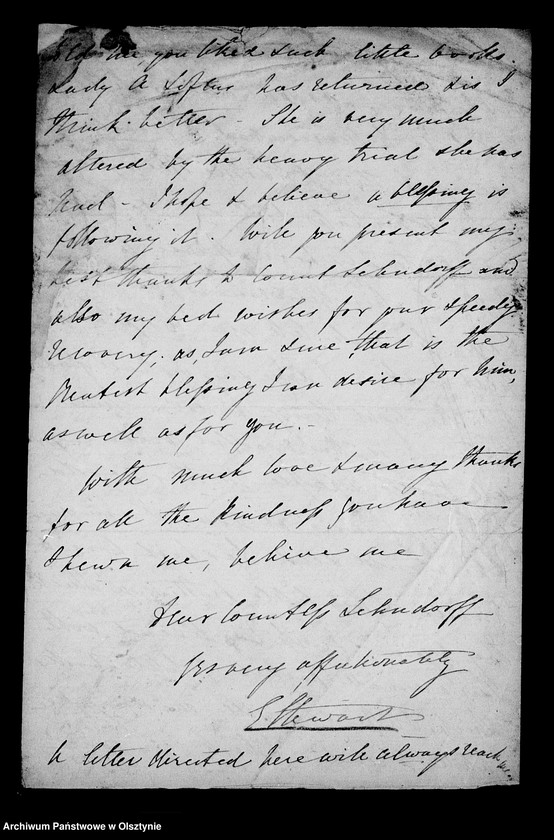 told me you liked such little books.
Lady A has returned I
think better – She is very much
altered by the heavy trial she has
had – I hope & believe a blessing is
following it. Will you present my
best thanks to Count Lehndorff and
also my bed wishes for your speedy
recovery, as, I am sure that is the
greatest blessing I can desire for him,
as well as for you. –
With much love & many thanks
for all the kindness you have
shewn me, believe me
dear Countess Lehndorff
yrs very affectionately
E Stewart
A letter directed here will always reach me
Archiwum Państwowe w Olsztynie